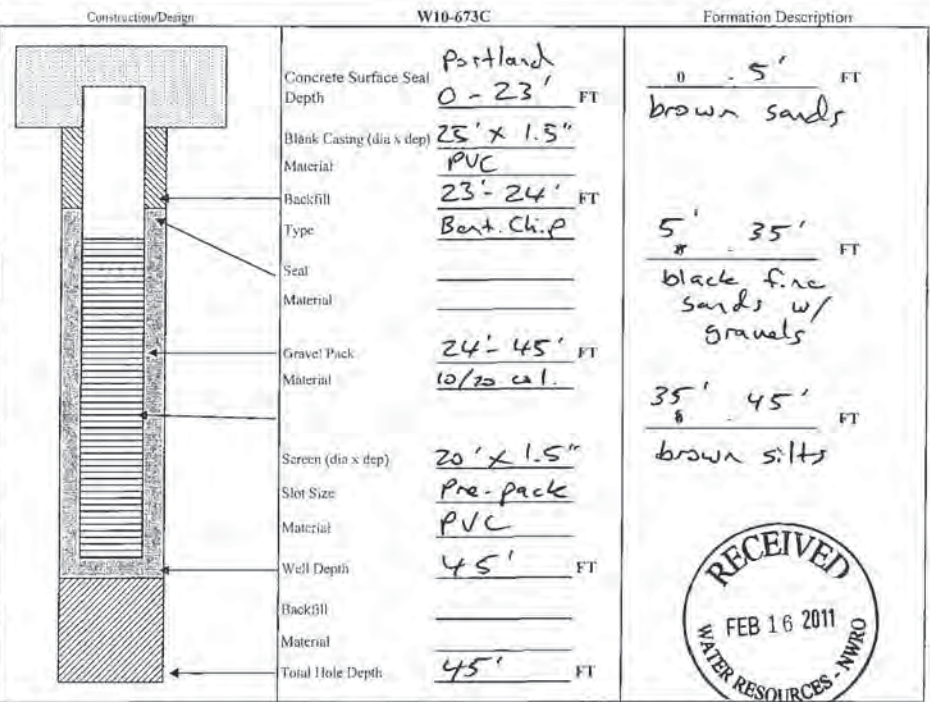 Construction/Design
W10-673C
Formation Description
Portland
Concrete Surface Seal
Depth 0 - 23' FT
Blank Casing (dia x dep) 25' x 1.5"
Material PVC
Backfill 23' - 24' FT
Type Bent. Chip
Seal
Material
Gravel Pack 24' - 45' FT
Material 10/20 col.
Screen (dia x dep) 20' x 1.5"
Slot Size Pre-pack
Material PVC
Well Depth 45' FT
Backfill
Material
Total Hole Depth 45' FT
0 - 5' FT
brown sands
5' - 35' FT
black fine
sands w/
gravels
35' - 45' FT
brown silts
RECEIVED
FEB 16 2011
WATER RESOURCES - NWRO